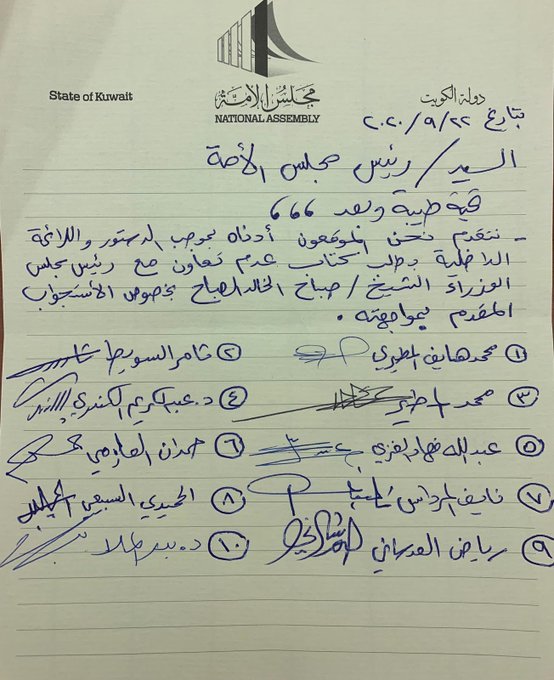 State of Kuwait
مجلس الأمة
NATIONAL ASSEMBLY
دولة الكويت
بتاريخ ٢٠٢٠/٩/٢٢
السيد/ رئيس مجلس الأمة
تحية طيبة وبعد ،،،
- نتقدم نحن الموقعون أدناه بموجب الدستور واللائحة
الداخلية بطلب كتاب عدم تعاون مع رئيس مجلس
الوزراء الشيخ/ صباح الخالد الصباح بخصوص الأستجواب
المقدم بمواجهته .
١ محمد هايف المطيري ٢ ثامر السويط
٣ محمد المطير ٤ د. عبدالكريم الكندري
٥ عبدالله فهاد العنزي ٦ حمدان العازمي
٧ نايف المرداس ٨ الحميدي السبيعي
٩ رياض العدساني ١٠ د. بدر الملا